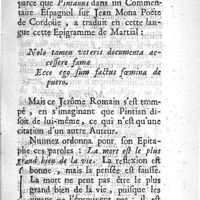 parce que Pintianus dans un Commen-
taire Espagnol sur Jean Mena Poëte
de Cordoüe, a traduit en cette lan-
gue cette Epigramme de Martial:
Nolo tamen veteris documenta ac-
cessere fama
Ecce ego sum factus femina de
puero.
Mais ce Jerôme Romain s'est trom-
pé, en s'imaginant que Pintian di-
soit de lui-même, ce qui n'est qu'une
citation d'un autre Auteur.
Nunnez ordonna pour son Epita-
phe ces paroles: La mort est le plus
grand bien de la vie. La reflexion est
bonne, mais la pensée est fausse.
La mort ne peut pas être le plus
grand bien de la vie, puisque les